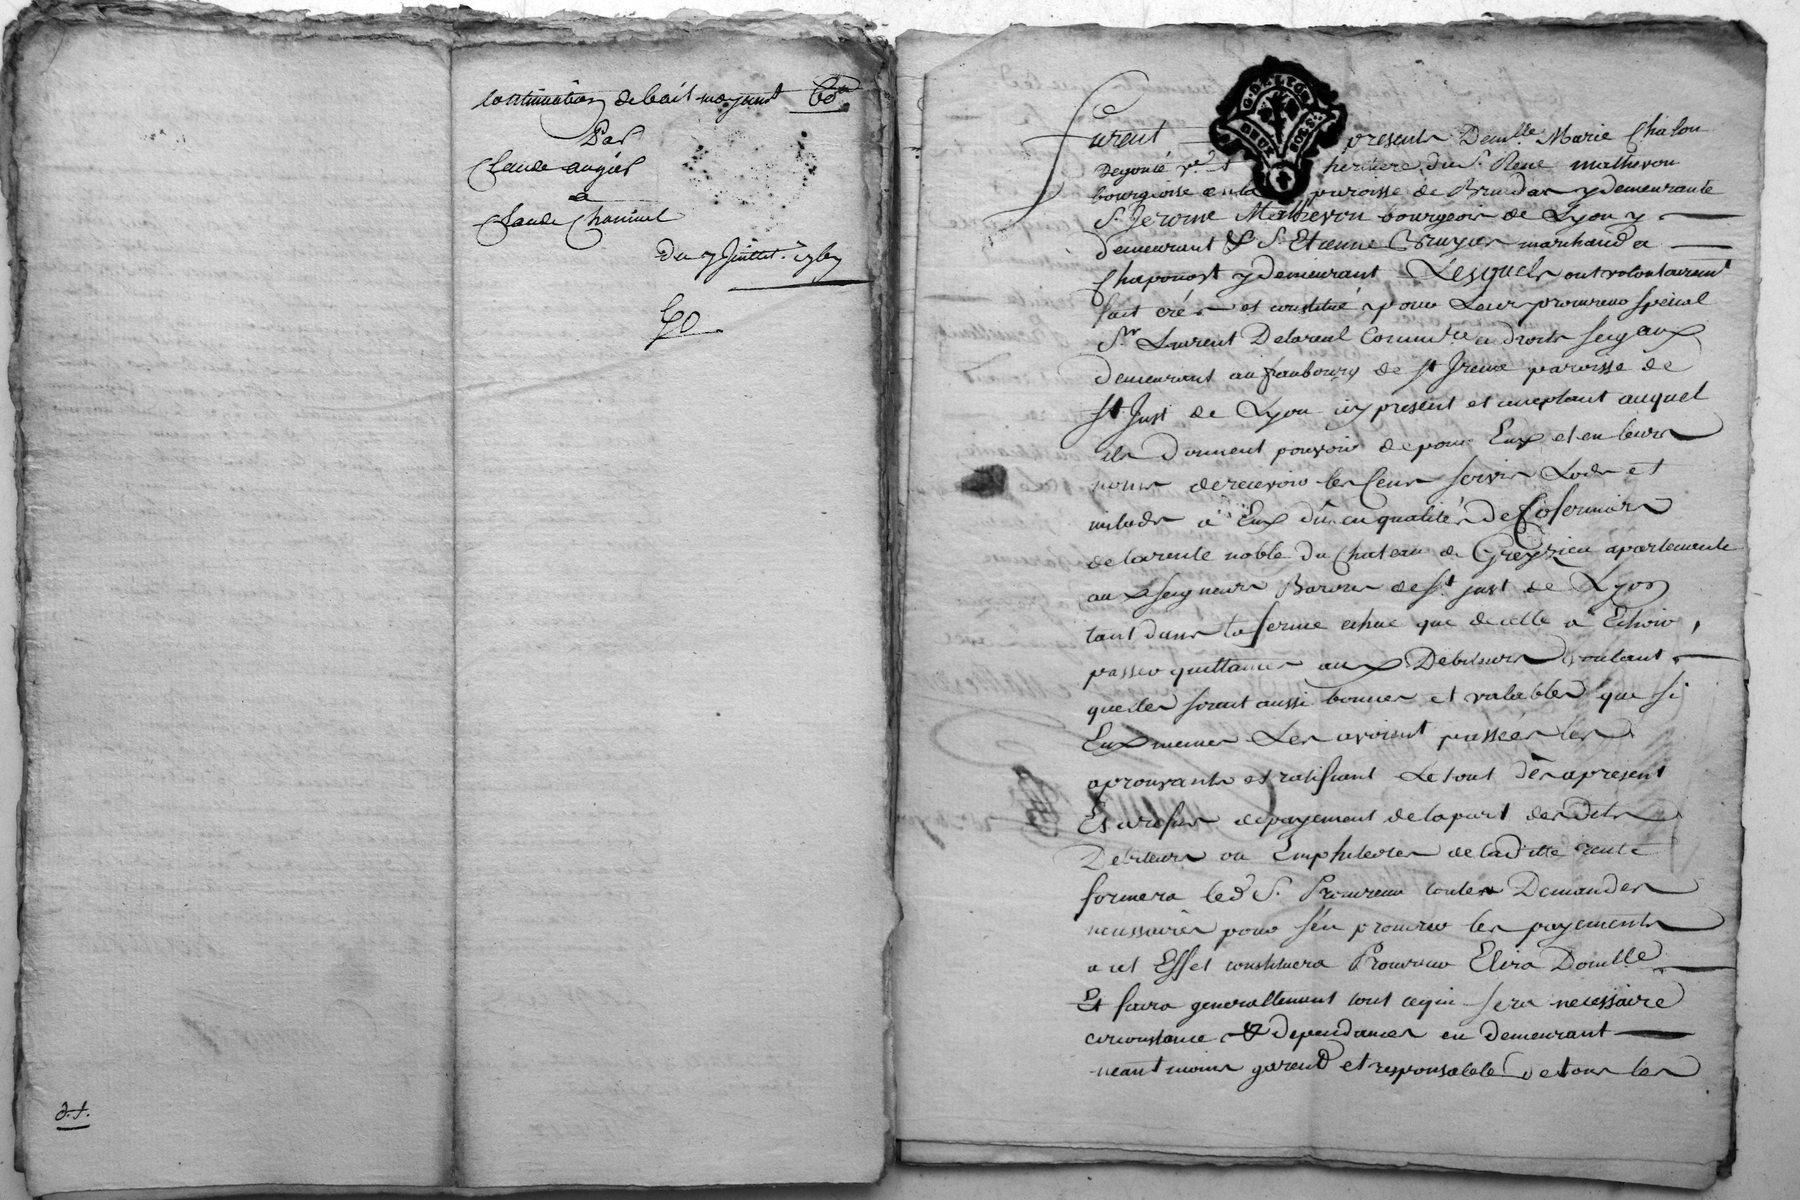 continuation de bail moyent 60ᵗᵗ
Par
Claude augier
a
Claude Chaninel
Du 7 Juillet
d.t.
G.D.LYON
DEUX SOLS
furent presents Demlle. Marie Chalon
Degouté ve. heritiere du Sr. René mathevon
bourgoise en la paroisse de Brindas y demeurante
Sr. Jerome Mathevon bourgeois de Lyon y
demeurant & Sr. Etienne Bruyas marchand a
Chaponost y demeurant Lesquels ont volontairemt
fait créé et constitué pour Leur procureur special
Sr. Laurent Delareul Commre. a droits seigaux
demeurant au fauboury de st Irenée paroisse de
st Just de Lyon icy present et acceptant auquel
ils donnent pouvoir de pour Eux et en leurs
noms de recevoir les Cens servis Lods et
milods a Eux dûs en qualités de Cofermiers
de la rente noble du Chateau de Greyzieu apartenante
aux seigneurs Barons de st. just de Lyon
tant dans la ferme echue que de celle a Echoir,
passer quittances aux Debiteurs voulant
quelles soient aussi bonnes et valables que si
Eux memes Les avoient passées les
aprouvants et ratifiant Le tout dès apresent
Et a refus de payement de la part des Dits
Debiteurs ou Emphiteotes de la ditte rente
formera led. Sr. Procureur toutes Demandes
necessaires pour s'en procurer les payements
a cet Effet constituera Procureur Elira Domlle.
Et faira generallement tout cequi sera necessaire
circonstance & dependances en demeurant
neant moins garend et responsable de tous les